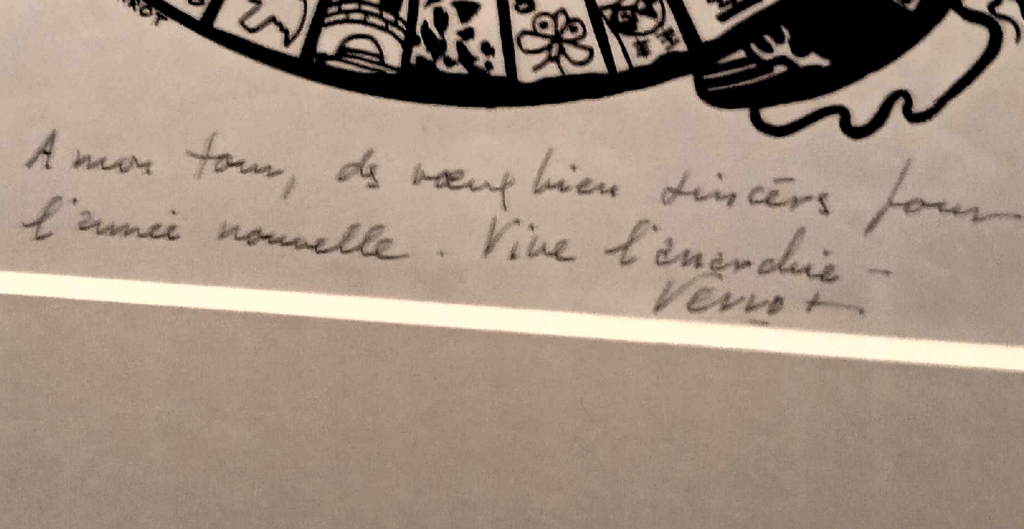 A mon tour, ds vœux bien sincèrs pour
l'année nouvelle. Vive l'anarchie -